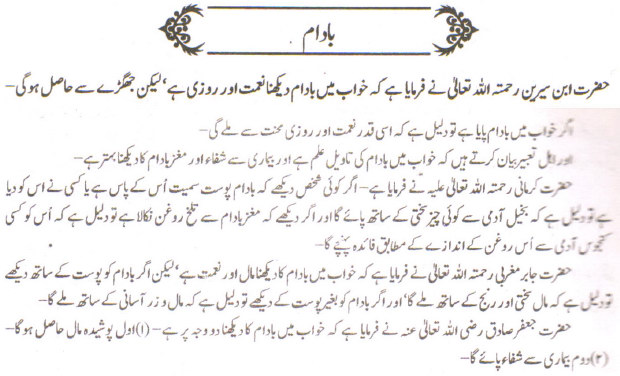 بادام
حضرت ابن سیرین رحمتہ اللہ تعالیٰ نے فرمایا ہے کہ خواب میں بادام دیکھنا نعمت اور روزی ہے‘ لیکن جھگڑے سے حاصل ہوگی–
اگر خواب میں بادام پایا ہے تو دلیل ہے کہ اسی قدر نعمت اور روزی محنت سے ملے گی–
اور اہل تعبیر بیان کرتے ہیں کہ خواب میں بادام کی تاویل علم ہے اور بیماری سے شفاء اور مغز بادام کا دیکھنا بہتر ہے–
حضرت کرمانی رحمتہ اللہ تعالیٰ علیہ نے فرمایا ہے– اگر کوئی شخص دیکھے کہ بادام پوست سمیت اُس کے پاس ہے یا کسی نے اس کو دیا
ہے تو دلیل ہے کہ بخیل آدمی سے کوئی چیز سختی کے ساتھ پائے گا اور اگر دیکھے کہ مغز بادام سے تلخ روغن نکالا ہے تو دلیل ہے کہ اُس کو کسی
کنجوس آدمی سے اُس روغن کے اندازے کے مطابق فائدہ پہنچے گا–
حضرت جابر مغربی رحمتہ اللہ تعالیٰ نے فرمایا ہے کہ خواب میں بادام کا دیکھنا مال اور نعمت ہے‘ لیکن اگر بادام کو پوست کے ساتھ دیکھے
تو دلیل ہے کہ مال سختی اور رنج کے ساتھ ملے گا‘ اور اگر بادام کو بغیر پوست کے دیکھے تو دلیل ہے کہ مال و زر آسانی کے ساتھ ملے گا–
حضرت جعفر صادق رضی اللہ تعالیٰ عنہ نے فرمایا ہے کہ خواب میں بادام کا دیکھنا دو وجہ پر ہے– (۱) اول پوشیدہ مال حاصل ہو گا–
(۲) دوم بیماری سے شفاء پائے گا–